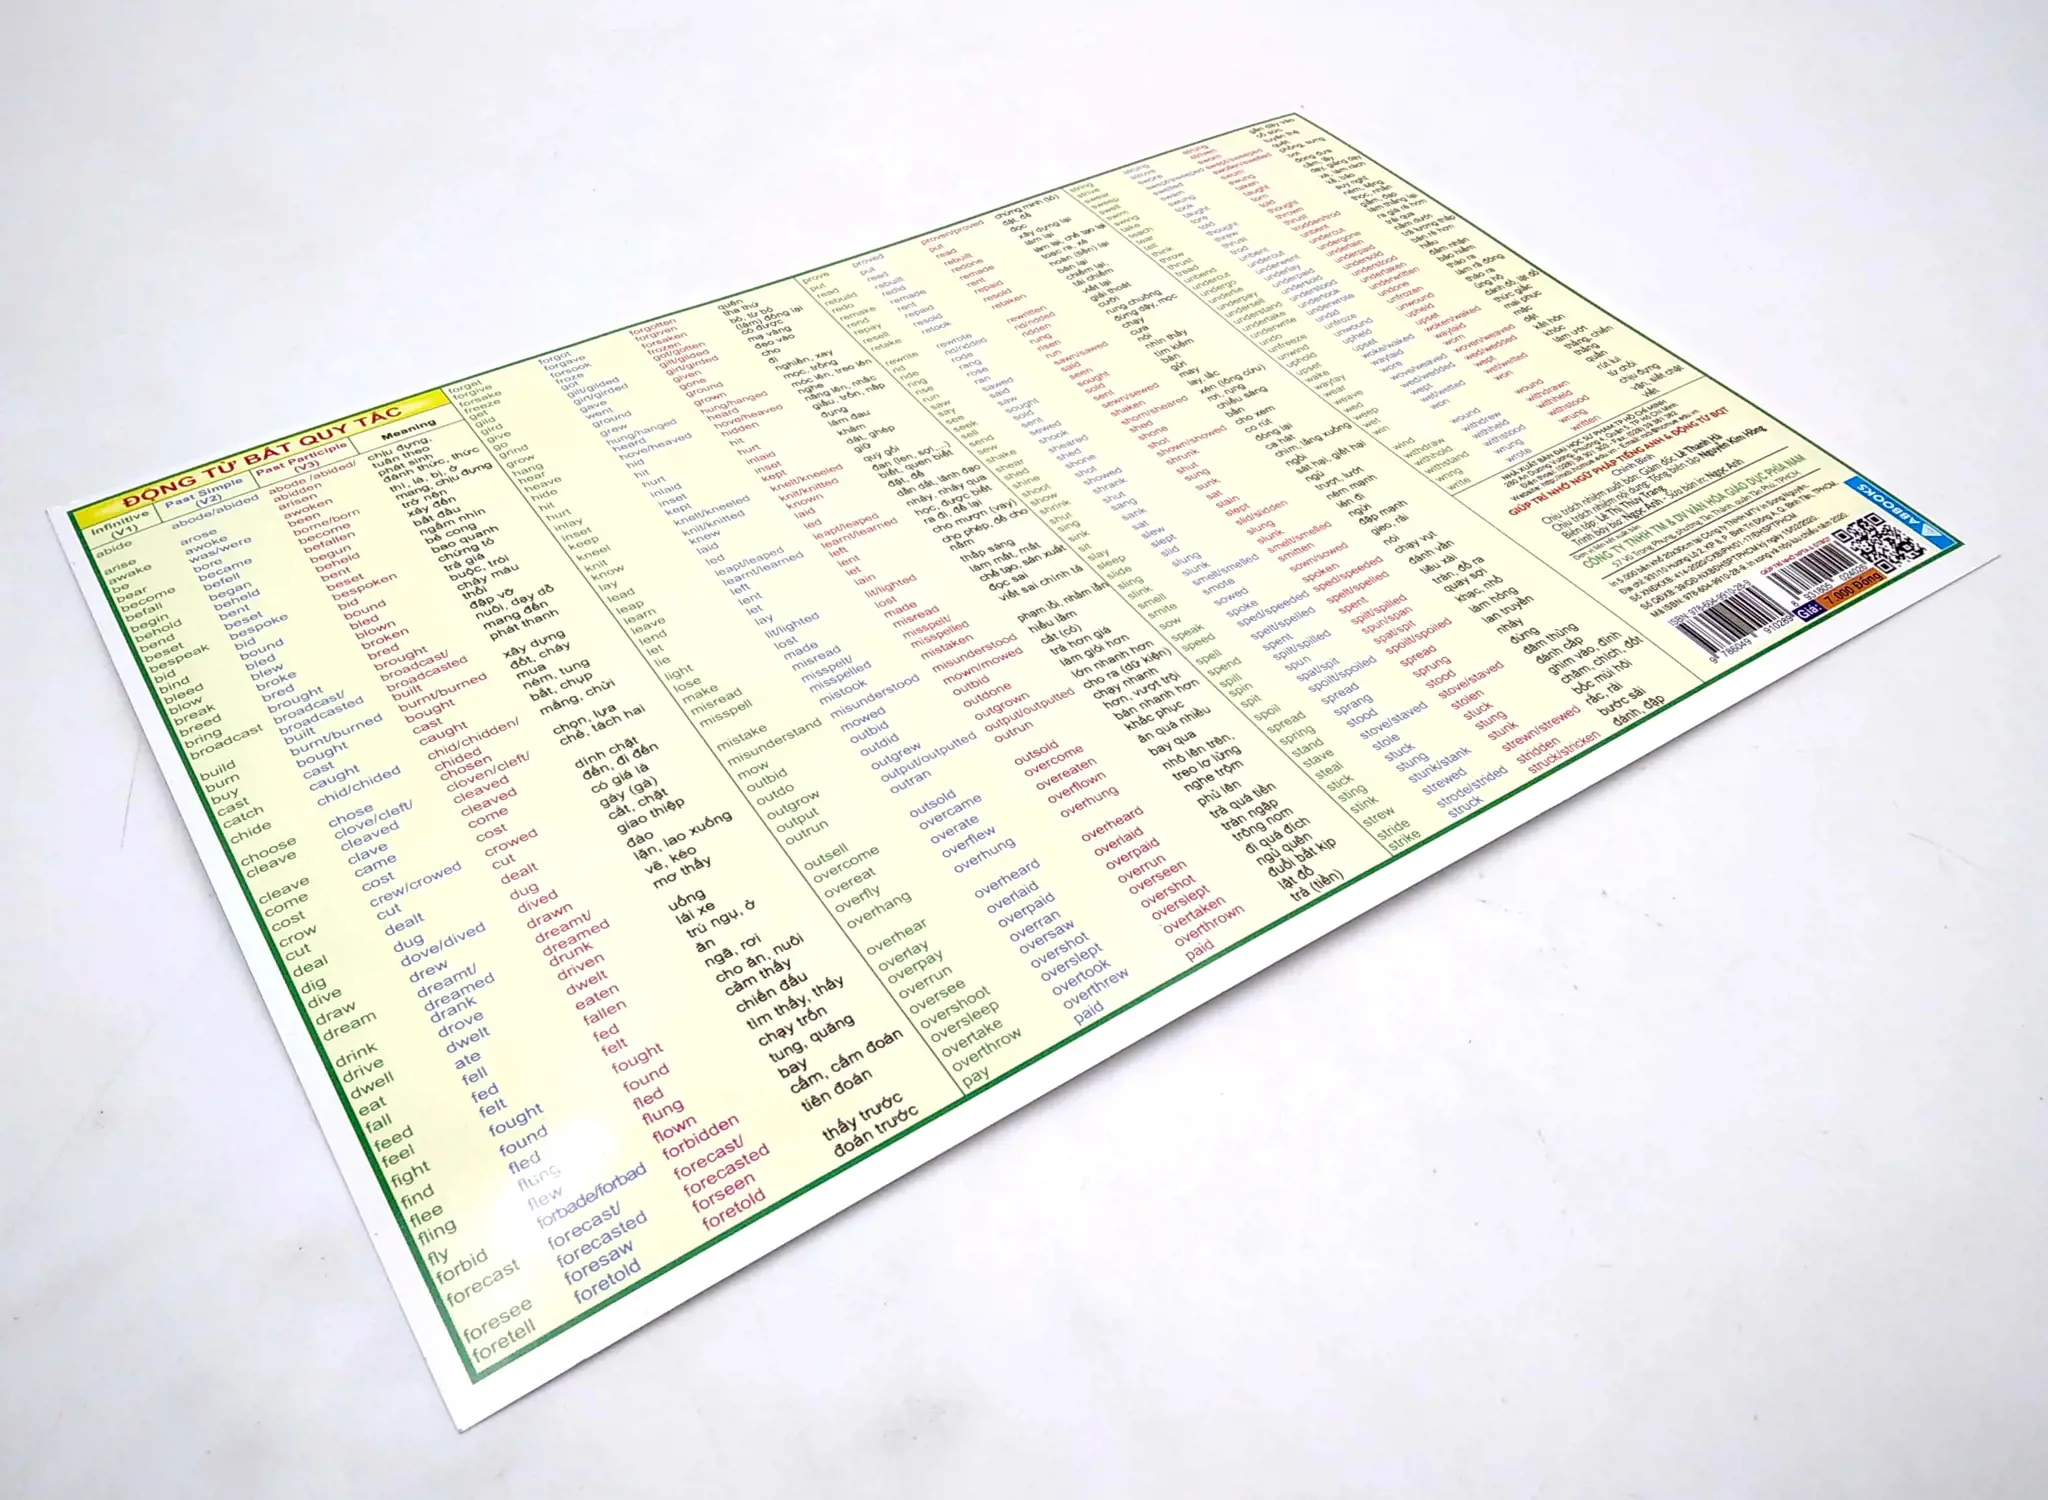 ĐỘNG TỪ BẤT QUY TẮC
Infinitive (V1) Past Simple (V2) Past Participle (V3) Meaning
abide abode/abided abode /abided/ abidden chịu đựng, tuân theo
arise arose arisen phát sinh
awake awoke awoken đánh thức, thức
be was/were been thì, là, bị, ở
bear bore borne/born mang, chịu đựng
become became become trở nên
befall befell befallen xảy đến
begin began begun bắt đầu
behold beheld beheld ngắm nhìn
bend bent bent bẻ cong
beset beset beset bao quanh
bespeak bespoke bespoken chứng tỏ
bid bid bid trả giá
bind bound bound buộc, trói
bleed bled bled chảy máu
blow blew blown thổi
break broke broken đập vỡ
breed bred bred nuôi, dạy dỗ
bring brought brought mang đến
broadcast broadcast/ broadcasted broadcast/ broadcasted phát thanh
build built built xây dựng
burn burnt/burned burnt/burned đốt, cháy
buy bought bought mua
cast cast cast ném, tung
catch caught caught bắt, chụp
chide chid/chided chid/chidden/ chided mắng, chửi
choose chose chosen chọn, lựa
cleave clove/cleft/ cleaved cloven/cleft/ cleaved chẻ, tách hai
cleave clave cleaved dính chặt
come came come đến, đi đến
cost cost cost có giá là
crow crew/crowed crowed gáy (gà)
cut cut cut cắt, chặt
deal dealt dealt giao thiệp
dig dug dug đào
dive dove/dived dived lặn, lao xuống
draw drew drawn vẽ, kéo
dream dreamt/ dreamed dreamt/ dreamed mơ thấy
drink drank drunk uống
drive drove driven lái xe
dwell dwelt dwelt trú ngụ, ở
eat ate eaten ăn
fall fell fallen ngã, rơi
feed fed fed cho ăn, nuôi
feel felt felt cảm thấy
fight fought fought chiến đấu
find found found tìm thấy, thấy
flee fled fled chạy trốn
fling flung flung tung, quăng
fly flew flown bay
forbid forbade/forbad forbidden cấm, cấm đoán
forecast forecast/ forecasted forecast/ forecasted tiên đoán
foresee foresaw forseen thấy trước
foretell foretold foretold đoán trước
forget forgot forgotten quên
forgive forgave forgiven tha thứ
forsake forsook forsaken bỏ, từ bỏ
freeze froze frozen (làm) đông lại
get got got/gotten có được
gild gilt/gilded gilt/gilded mạ vàng
gird girt/girded girt/girded đeo vào
give gave given cho
go went gone đi
grind ground ground nghiền, xay
grow grew grown mọc, trồng
hang hung/hanged hung/hanged móc lên, treo lên
hear heard heard nghe
heave hove/heaved hove/heaved nâng lên, nhấc
hide hid hidden giấu, trốn, nấp
hit hit hit đụng
hurt hurt hurt làm đau
inlay inlaid inlaid khảm
inset inset inset dát, ghép
keep kept kept giữ
kneel knelt/kneeled knelt/kneeled quỳ gối
knit knit/knitted knit/knitted đan (len, sợi,..)
know knew known biết, quen biết
lay laid laid đặt, để
lead led led dẫn dắt, lãnh đạo
leap leapt/leaped leapt/leaped nhảy, nhảy qua
learn learnt/learned learnt/learned học, được biết
leave left left ra đi, để lại
lend lent lent cho mượn (vay)
let let let cho phép, để cho
lie lay lain nằm
light lit/lighted lit/lighted thắp sáng
lose lost lost làm mất, mất
make made made chế tạo, sản xuất
misread misread misread đọc sai
misspell misspelt/ misspelled misspelt/ misspelled viết sai chính tả
mistake mistook mistaken phạm lỗi, nhầm lẫn
misunderstand misunderstood misunderstood hiểu lầm
mow mowed mown/mowed cắt (cỏ)
outbid outbid outbid trả hơn giá
outdo outdid outdone làm giỏi hơn
outgrow outgrew outgrown lớn nhanh hơn
output output/outputted output/outputted cho ra (dữ kiện)
outrun outran outrun chạy nhanh hơn, vượt trội
outsell outsold outsold bán nhanh hơn
overcome overcame overcome khắc phục
overeat overate overeaten ăn quá nhiều
overfly overflew overflown bay qua
overhang overhung overhung nhô lên trên, treo lơ lửng
overhear overheard overheard nghe trộm
overlay overlaid overlaid phủ lên
overpay overpaid overpaid trả quá tiền
overrun overran overrun tràn ngập
oversee oversaw overseen trông nom
overshoot overshot overshot đi quá đích
oversleep overslept overslept ngủ quên
overtake overtook overtaken đuổi bắt kịp
overthrow overthrew overthrown lật đổ
pay paid paid trả (tiền)
prove proved proven/proved chứng minh (tỏ)
put put put đặt, để
read read read đọc
rebuild rebuilt rebuilt xây dựng lại
redo redid redone làm lại
remake remade remade làm lại, chế tạo lại
rend rent rent toạc ra, xé
repay repaid repaid hoàn (tiền) lại
resell resold resold bán lại
retake retook retaken chiếm lại, tái chiếm
rewrite rewrote rewritten viết lại
rid rid/ridded rid/ridded giải thoát
ride rode ridden cưỡi
ring rang rung rung chuông
rise rose risen đứng dậy, mọc
run ran run chạy
saw sawed sawn/sawed cưa
say said said nói
see saw seen nhìn thấy
seek sought sought tìm kiếm
sell sold sold bán
send sent sent gửi
sew sewed sewn/sewed may
shake shook shaken lay, lắc
shear sheared shorn/sheared xén (lông cừu)
shed shed shed rơi, rụng
shine shone shone chiếu sáng
shoot shot shot bắn
show showed shown/showed cho xem
shrink shrank shrunk co rút
shut shut shut đóng lại
sing sang sung ca hát
sink sank sunk chìm, lặng xuống
sit sat sat ngồi
slay slew slain sát hại, giết hại
sleep slept slept ngủ
slide slid slid/slidden trượt, lướt
sling slung slung ném mạnh
smell smelt/smelled smelt/smelled ngửi
smite smote smitten đập mạnh
sow sowed sown/sowed gieo, rải
speak spoke spoken nói
speed sped/speeded sped/speeded chạy vụt
spell spelt/spelled spelt/spelled đánh vần
spend spent spent tiêu xài
spill spilt/spilled spilt/spilled tràn, đổ ra
spin spun spun/span quay sợi
spit spat/spit spat/spit khạc, nhổ
spoil spoilt/spoiled spoilt/spoiled làm hỏng
spread spread spread lan truyền
spring sprang sprung nhảy
stand stood stood đứng
stave stove/staved stove/staved đâm thủng
steal stole stolen đánh cắp
stick stuck stuck ghim vào, đính
sting stung stung châm, chích, đốt
stink stunk/stank stunk bốc mùi hôi
strew strewed strewn/strewed rắc, rải
stride strode/strided stridden bước sải
strike struck struck/stricken đánh, đập
string strung strung gắn dây vào
strive strove striven cố sức
swear swore sworn tuyên thệ
sweep swept/sweeped swept/sweeped quét
swell swelled swollen/swelled phồng, sưng
swim swam swum bơi
swing swung swung đong đưa
take took taken cầm, lấy
teach taught taught dạy, giảng dạy
tear tore torn xé, làm rách
tell told told kể, bảo
think thought thought suy nghĩ
throw threw thrown ném, liệng
thrust thrust thrust thọc, nhấn
tread trod trodden/trod giẫm, đạp
unbend unbent unbent làm thẳng lại
undercut undercut undercut ra giá rẻ hơn
undergo underwent undergone trải qua
underlie underlay underlain nằm dưới
underpay underpaid underpaid trả lương thấp
undersell undersold undersold bán rẻ hơn
understand understood understood hiểu
undertake undertook undertaken đảm nhận
underwrite underwrote underwritten bảo hiểm
undo undid undone tháo ra
unfreeze unfroze unfrozen làm rã đông
unwind unwound unwound tháo ra
uphold upheld upheld ủng hộ
upset upset upset đánh đổ, lật đổ
wake woke/waked woken/waked thức giấc
waylay waylaid waylaid mai phục
wear wore worn mặc
weave wove/weaved woven/weaved dệt
wed wed/wedded wed/wedded kết hôn
weep wept wept khóc
wet wet/wetted wet/wetted làm ướt
win won won thắng, chiến thắng
wind wound wound quấn
withdraw withdrew withdrawn rút lui
withhold withheld withheld từ chối
withstand withstood withstood chịu đựng
wring wrung wrung vặn, siết chặt
write wrote written viết
NHÀ XUẤT BẢN ĐẠI HỌC SƯ PHẠM TP HỒ CHÍ MINH
280 An Dương Vương, Phường 4, Quận 5, TP Hồ Chí Minh
GIÚP TRÍ NHỚ NGỮ PHÁP TIẾNG ANH & ĐỘNG TỪ BQT
Chinh Bình
Chịu trách nhiệm xuất bản: Giám đốc Lê Thanh Hà
Chịu trách nhiệm nội dung: Tổng biên tập Nguyễn Kim Hồng
Biên tập: Lê Thị Thùy Trang
Trình bày bìa: Ngọc Anh - Sửa bản in: Ngọc Anh
Đơn vị liên kết xuất bản
CÔNG TY TNHH TM & DV VĂN HÓA GIÁO DỤC PHÍA NAM
ABBOOKS
ISBN: 978-604-9910-28-9
Giá: 7.000 Đồng